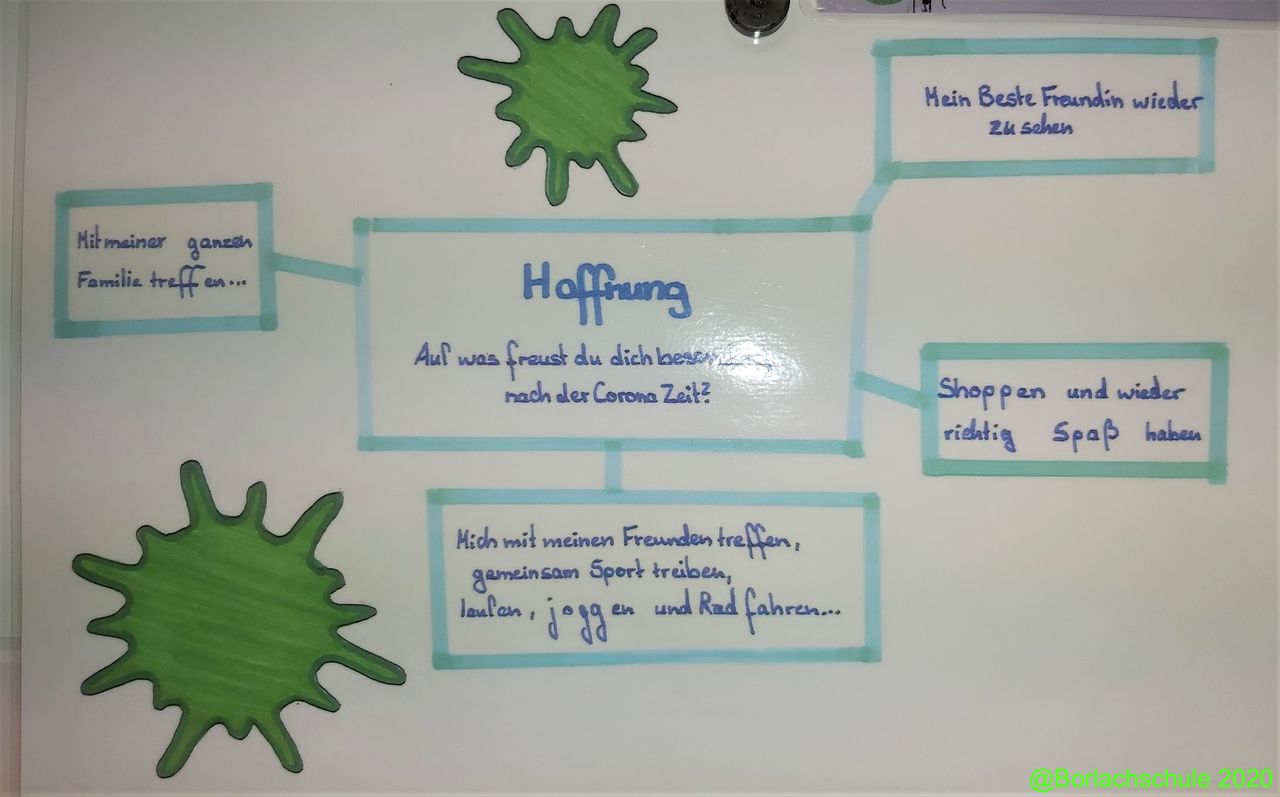 Mein Beste Freundin wieder
zu sehen
Mit meiner ganzen
Familie treffen...
Hoffnung
Auf was freust du dich
nach der Corona Zeit?
Shoppen und wieder
richtig Spaß haben
Mich mit meinen Freunden treffen,
gemeinsam Sport treiben,
laufen, joggen und Rad fahren...
@Borlachschule 2020